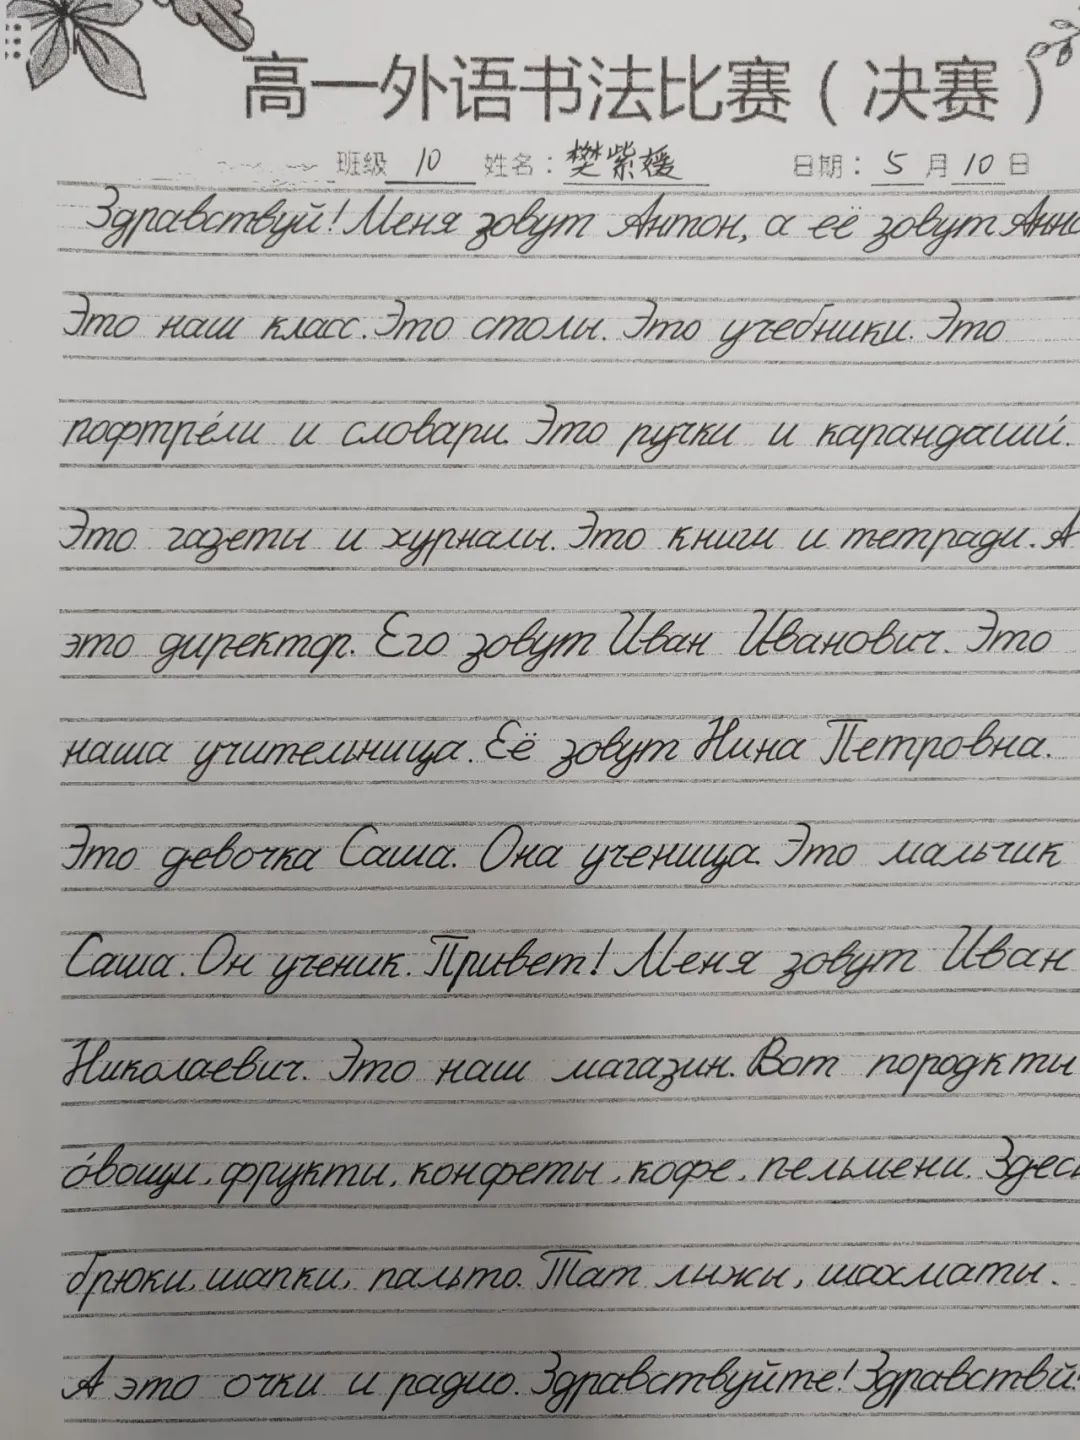 高一外语书法比赛（决赛）
班级 10 姓名：樊紫媛 日期：5月10日
Здравствуй! Меня зовут Антон, а её зовут
Это наш класс. Это столы. Это учебники. Это
пофтре́ли и словари. Это ручки и карандаши́.
Это газеты и журналы. Это книги и тетради. А
это директор. Его зовут Иван Иванович. Это
наша учительница. Её зовут Нина Петровна.
Это девочка Саша. Она ученица. Это мальчик
Саша. Он ученик. Привет! Меня зовут Иван
Николаевич. Это наш магазин. Вот породкты
о́вощи, фрукты, конфеты, кофе, пельмени.
брюки, шапки, пальто. Тат лыжи, шахматы.
А это очки и радио. Здравствуйте!